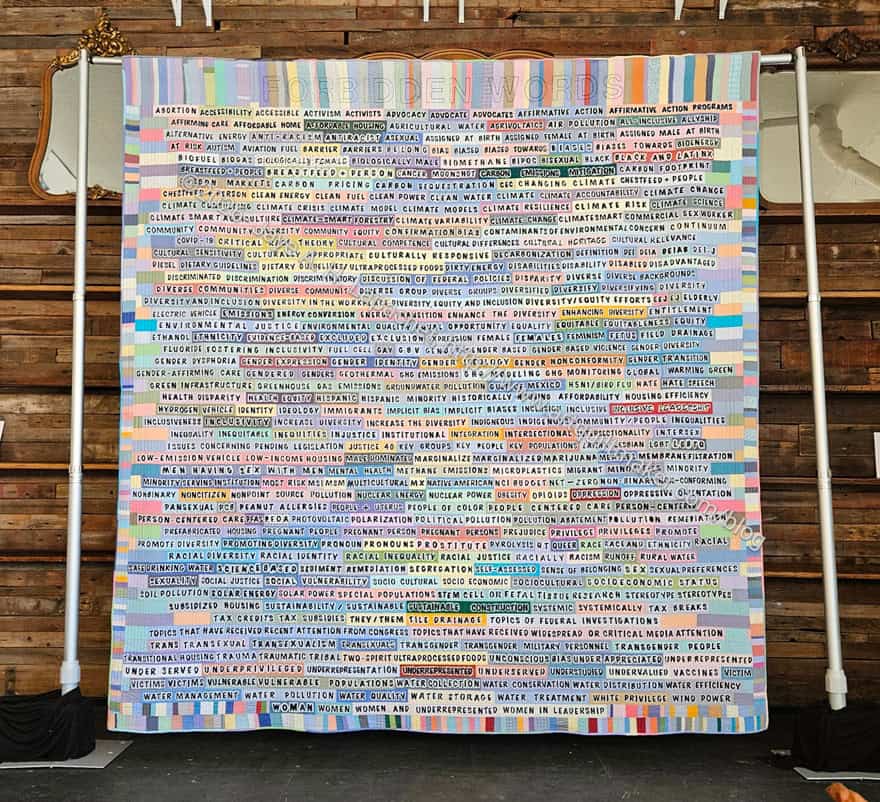 FORBIDDEN WORDS
ABORTION ACCESSIBILITY ACCESSIBLE ACTIVISM ACTIVISTS ADVOCACY ADVOCATE ADVOCATES AFFIRMATIVE ACTION AFFIRMATIVE ACTION PROGRAMS
AFFIRMING CARE AFFORDABLE HOME AFFORDABLE HOUSING AGRICULTURAL WATER AGRIVOLTAICS AIR POLLUTION ALL-INCLUSIVE ALLYSHIP
ALTERNATIVE ENERGY ANTI-RACISM ANTIRACIST ASEXUAL ASSIGNED AT BIRTH ASSIGNED FEMALE AT BIRTH ASSIGNED MALE AT BIRTH
AT RISK AUTISM AVIATION FUEL BARRIER BARRIERS BELONG BIAS BIASED BIASED TOWARD BIASES BIASES TOWARDS BIOENERGY
BIOFUEL BIOGAS BIOLOGICALLY FEMALE BIOLOGICALLY MALE BIOMETHANE BIPOC BISEXUAL BLACK BLACK AND LATINX
BREASTFEED + PEOPLE BREASTFEED + PERSON CANCER MOONSHOT CARBON EMISSIONS MITIGATION CARBON FOOTPRINT
CARBON MARKETS CARBON PRICING CARBON SEQUESTRATION CEC CHANGING CLIMATE CHESTFEED PEOPLE
CHESTFEED + PERSON CLEAN ENERGY CLEAN FUEL CLEAN POWER CLEAN WATER CLIMATE CLIMATE ACCOUNTABILITY CLIMATE CHANGE
CLIMATE CONSULTING CLIMATE CRISIS CLIMATE MODEL CLIMATE MODELS CLIMATE RESILIENCE CLIMATE RISK CLIMATE SCIENCE
CLIMATE SMART AGRICULTURE CLIMATE-SMART FORESTRY CLIMATE VARIABILITY CLIMATE-CHANGE CLIMATESMART COMMERCIAL SEX WORKER
COMMUNITY COMMUNITY DIVERSITY COMMUNITY EQUITY CONFIRMATION BIAS CONTAMINANTS OF ENVIRONMENTAL CONCERN CONTINUUM
COVID-19 CRITICAL RACE THEORY CULTURAL COMPETENCE CULTURAL DIFFERENCES CULTURAL HERITAGE CULTURAL RELEVANCE
CULTURAL SENSITIVITY CULTURALLY APPROPRIATE CULTURALLY RESPONSIVE DECARBONIZATION DEFINITION DEI DEIA DEIAB DEIJ
DIESEL DIETARY GUIDELINES DIETARY GUIDELINES ULTRAPROCESSED FOODS DIRTY ENERGY DISABILITIES DISABILITY DISABLED DISADVANTAGED
DISCRIMINATED DISCRIMINATION DISCRIMINATORY DISCUSSION OF FEDERAL POLICIES DISPARITY DIVERSE DIVERSE BACKGROUNDS
DIVERSE COMMUNITIES DIVERSE COMMUNITY DIVERSE GROUP DIVERSE GROUPS DIVERSIFIED DIVERSIFY DIVERSIFYING DIVERSITY
DIVERSITY AND INCLUSION DIVERSITY IN THE WORKPLACE DIVERSITY, EQUITY AND INCLUSION DIVERSITY/EQUITY EFFORTS EEJ EJ ELDERLY
ELECTRIC VEHICLE EMISSIONS ENERGY CONVERSION ENERGY TRANSITION ENHANCE THE DIVERSITY ENHANCING DIVERSITY ENTITLEMENT
ENVIRONMENTAL JUSTICE ENVIRONMENTAL QUALITY EQUAL OPPORTUNITY EQUALITY EQUITABLE EQUITABLENESS EQUITY
ETHANOL ETHNICITY EVIDENCE-BASED EXCLUDED EXCLUSION EXPRESSION FEMALE FEMALES FEMINISM FETUS FIELD DRAINAGE
FLUORIDE FOSTERING INCLUSIVITY FUEL CELL GAY GBV GENDER GENDER BASED GENDER BASED VIOLENCE GENDER DIVERSITY
GENDER DYSPHORIA GENDER EXPRESSION GENDER IDENTITY GENDER IDEOLOGY GENDER NONCONFORMITY GENDER TRANSITION
GENDER-AFFIRMING CARE GENDERED GENDERS GEOTHERMAL GHG EMISSIONS GHG MODELING GHG MONITORING GLOBAL WARMING GREEN
GREEN INFRASTRUCTURE GREENHOUSE GAS EMISSIONS GROUNDWATER POLLUTION GULF OF MEXICO H5N1/BIRD FLU HATE HATE SPEECH
HEALTH DISPARITY HEALTH EQUITY HISPANIC HISPANIC MINORITY HISTORICALLY HIGH QUALITY HOUSING AFFORDABILITY HOUSING EFFICIENCY
HYDROGEN VEHICLE IDENTITY IDEOLOGY IMMIGRANTS IMPLICIT BIAS IMPLICIT BIASES INCLUSION INCLUSIVE INCLUSIVE LEADERSHIP
INCLUSIVENESS INCLUSIVITY INCREASE DIVERSITY INCREASE THE DIVERSITY INDIGENOUS INDIGENOUS COMMUNITY/PEOPLE INEQUALITIES
INEQUALITY INEQUITABLE INEQUITIES INJUSTICE INSTITUTIONAL INTEGRATION INTERSECTIONAL INTERSECTIONALITY INTERSEX
ISSUES CONCERNING PENDING LEGISLATION JUSTICE 40 KEY GROUPS KEY PEOPLE KEY POPULATIONS LESBIAN LGBT LGBTQ
LOW-EMISSION VEHICLE LOW-INCOME HOUSING MALE DOMINATED MARGINALIZE MARGINALIZED MARIJUANA MEMBRANE FILTRATION
MEN HAVING SEX WITH MEN MENTAL HEALTH METHANE EMISSIONS MICROPLASTICS MIGRANT MINORITIES MINORITY
MINORITY SERVING INSTITUTION MOST RISK MSI MSM MULTICULTURAL MX NATIVE AMERICAN NCI BUDGET NET-ZERO NON-CONFORMING
NONBINARY NONCITIZEN NONPOINT SOURCE POLLUTION NUCLEAR ENERGY NUCLEAR POWER OBESITY OPIOIDS OPPRESSION OPPRESSIVE ORIENTATION
PANSEXUAL PCB PEANUT ALLERGIES PEOPLE + UTERUS PEOPLE OF COLOR PEOPLE CENTERED CARE PERSON-CENTERED
PERSON CENTERED CARE PFAS PFOA PHOTOVOLTAIC POLARIZATION POLITICAL POLLUTION POLLUTION ABATEMENT POLLUTION REMEDIATION
PREFABRICATED HOUSING PREGNANT PEOPLE PREGNANT PERSON PREGNANT PERSONS PREJUDICE PRIVILEGE PRIVILEGES PROMOTE
PROMOTE DIVERSITY PROMOTING DIVERSITY PRONOUN PRONOUNS PROSTITUTE PYROLYSIS QT QUEER RACE RACE AND ETHNICITY RACIAL
RACIAL DIVERSITY RACIAL IDENTITY RACIAL INEQUALITY RACIAL JUSTICE RACIALLY RACISM RUNOFF RURAL WATER
SAFE DRINKING WATER SCIENCE BASED SEDIMENT REMEDIATION SEGREGATION SELF-ASSESSED SENSE OF BELONGING SEX SEXUAL PREFERENCES
SEXUALITY SOCIAL JUSTICE SOCIAL VULNERABILITY SOCIO CULTURAL SOCIO ECONOMIC SOCIOCULTURAL SOCIOECONOMIC STATUS
SOIL POLLUTION SOLAR ENERGY SOLAR POWER SPECIAL POPULATIONS STEM CELL OR FETAL TISSUE RESEARCH STEREOTYPE STEREOTYPES
SUBSIDIZED HOUSING SUSTAINABILITY/SUSTAINABLE SUSTAINABLE CONSTRUCTION SYSTEMIC SYSTEMICALLY TAX BREAKS
TAX CREDITS TAX SUBSIDIES THEY/THEM TILE DRAINAGE TOPICS OF FEDERAL INVESTIGATIONS
TOPICS THAT HAVE RECEIVED RECENT ATTENTION FROM CONGRESS TOPICS THAT HAVE RECEIVED WIDESPREAD OR CRITICAL MEDIA ATTENTION
TRANS TRANSEXUAL TRANSEXUALISM TRANSEXUALS TRANSGENDER TRANSGENDER MILITARY PERSONNEL TRANSGENDER PEOPLE
TRANSITIONAL HOUSING TRAUMA TRAUMATIC TRIBAL TWO-SPIRIT ULTRAPROCESSED FOODS UNCONSCIOUS BIAS UNDER APPRECIATED UNDER REPRESENTED
UNDER SERVED UNDERPRIVILEGED UNDERREPRESENTATION UNDERREPRESENTED UNDERSERVED UNDERSTUDIED UNDERVALUED VACCINES VICTIM
VICTIMS VICTIMS VULNERABLE VULNERABLE POPULATIONS WATER COLLECTION WATER CONSERVATION WATER DISTRIBUTION WATER EFFICIENCY
WATER MANAGEMENT WATER POLLUTION WATER QUALITY WATER STORAGE WATER TREATMENT WHITE PRIVILEGE WIND POWER
WOMAN WOMEN WOMEN AND UNDERREPRESENTED WOMEN IN LEADERSHIP